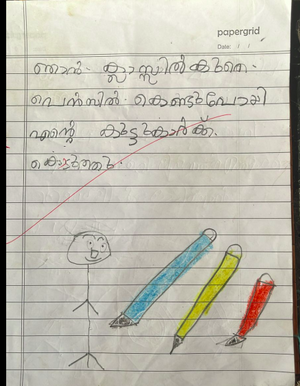 papergrid
Date: / /
ഞാൻ. ക്ലാസ്സിൽ കുറെ.
പെൻസിൽ. കൊണ്ടുപോയി
എന്റെ കൂട്ടുകാർക്ക്.
കൊടുത്തു.